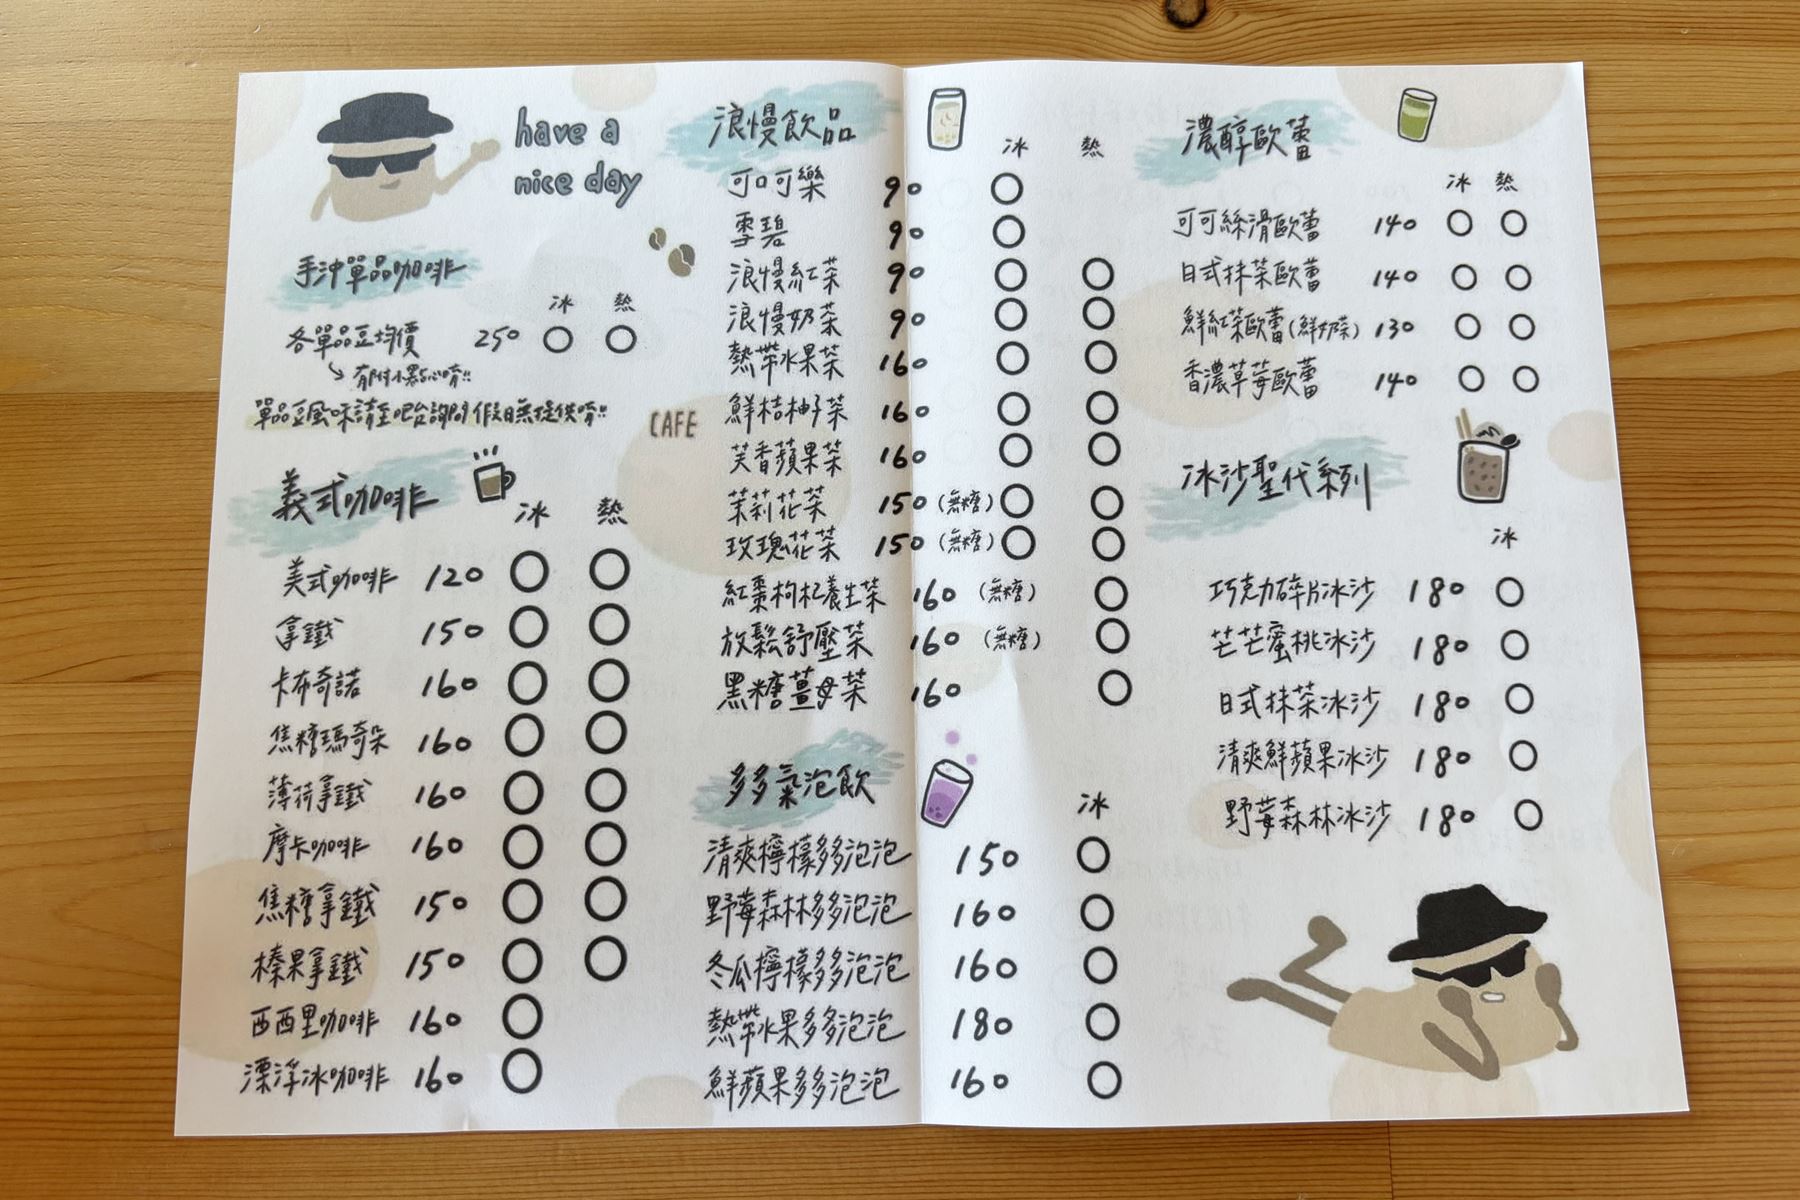 have a
nice day
手沖單品咖啡
冰 熱
各單品豆均價 250 ○ ○
有付小點心唷!!
單品豆風味請至吧台詢問 假日無提供唷!!
CAFE
義式咖啡 冰 熱
美式咖啡 120 ○ ○
拿鐵 150 ○ ○
卡布奇諾 160 ○ ○
焦糖瑪奇朵 160 ○ ○
薄荷拿鐵 160 ○ ○
摩卡咖啡 160 ○ ○
焦糖拿鐵 150 ○ ○
榛果拿鐵 150 ○ ○
西西里咖啡 160 ○
漂浮冰咖啡 160 ○
浪慢飲品 冰 熱
可口可樂 90 ○
雪碧 90 ○
浪慢紅茶 90 ○ ○
浪慢奶茶 90 ○ ○
熱帶水果茶 160 ○ ○
鮮桔柚子茶 160 ○ ○
芙香蘋果茶 160 ○ ○
茉莉花茶 150 (無糖) ○ ○
玫瑰花茶 150 (無糖) ○ ○
紅棗枸杞養生茶 160 (無糖) ○
放鬆舒壓茶 160 (無糖) ○
黑糖薑母茶 160 ○
多多氣泡飲 冰
清爽檸檬多多泡泡 150 ○
野莓森林多多泡泡 160 ○
冬瓜檸檬多多泡泡 160 ○
熱帶水果多多泡泡 180 ○
鮮蘋果多多泡泡 160 ○
濃醇歐蕾
冰 熱
可可絲滑歐蕾 140 ○ ○
日式抹茶歐蕾 140 ○ ○
鮮紅茶歐蕾(鮮奶茶) 130 ○ ○
香濃草莓歐蕾 140 ○ ○
冰沙聖代系列
冰
巧克力碎片冰沙 180 ○
芒芒蜜桃冰沙 180 ○
日式抹茶冰沙 180 ○
清爽鮮蘋果冰沙 180 ○
野莓森林冰沙 180 ○